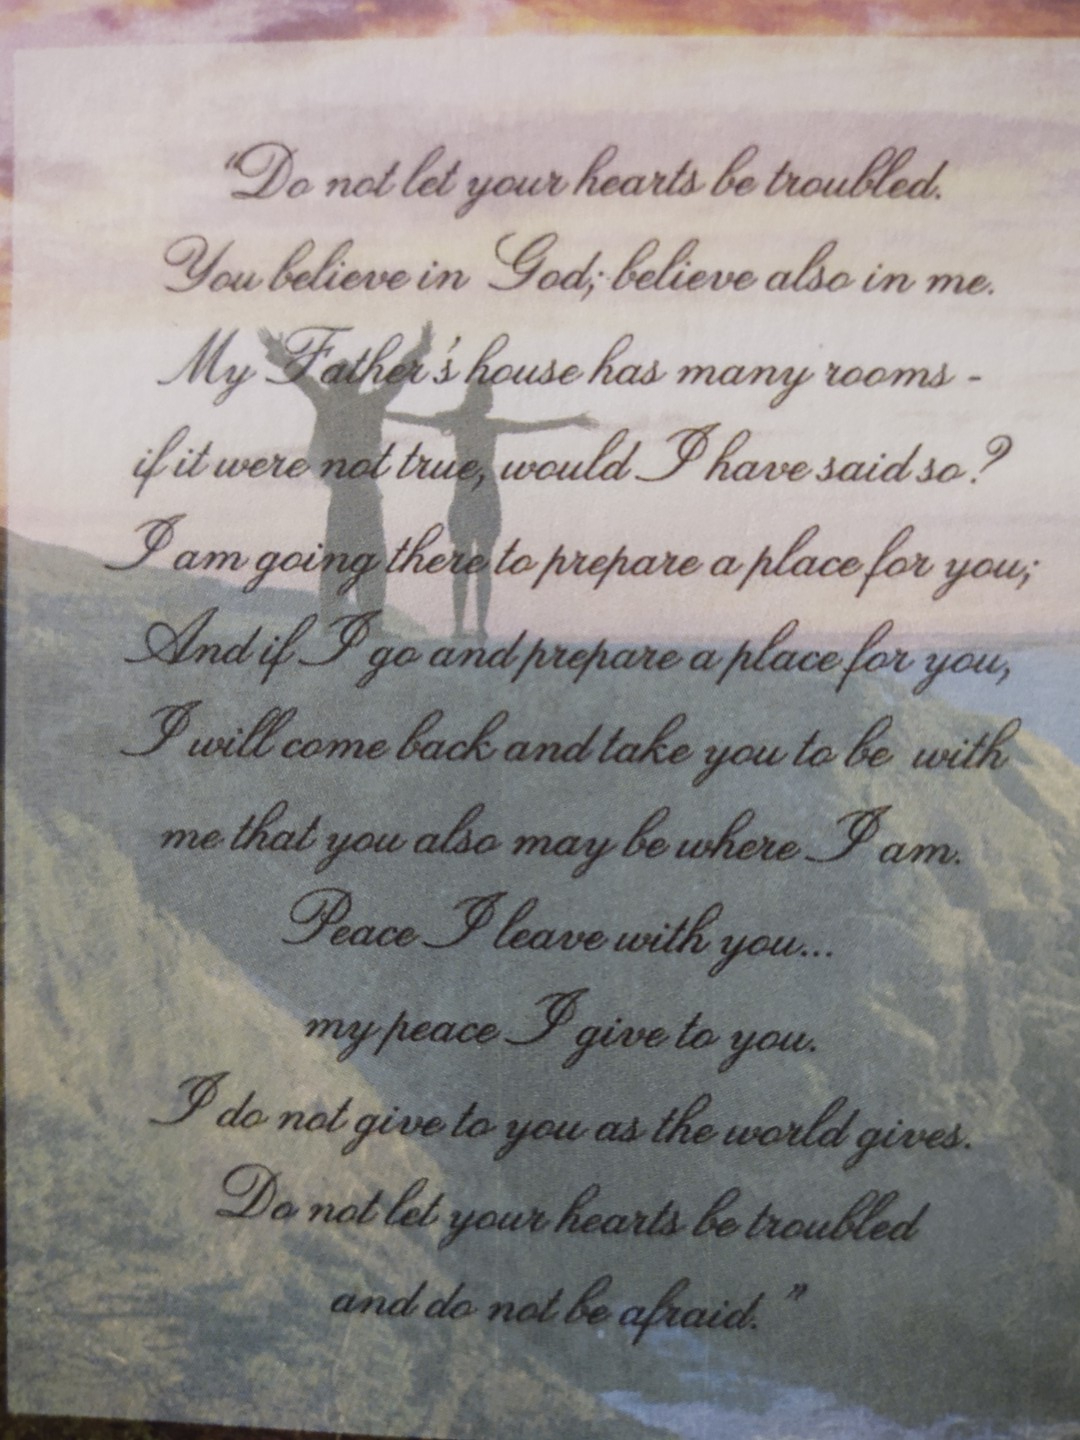 "Do not let your hearts be troubled.
You believe in God; believe also in me.
My Father's house has many rooms -
if it were not true, would I have said so?
I am going there to prepare a place for you;
And if I go and prepare a place for you,
I will come back and take you to be with
me that you also may be where I am.
Peace I leave with you...
my peace I give to you.
I do not give to you as the world gives.
Do not let your hearts be troubled
and do not be afraid."